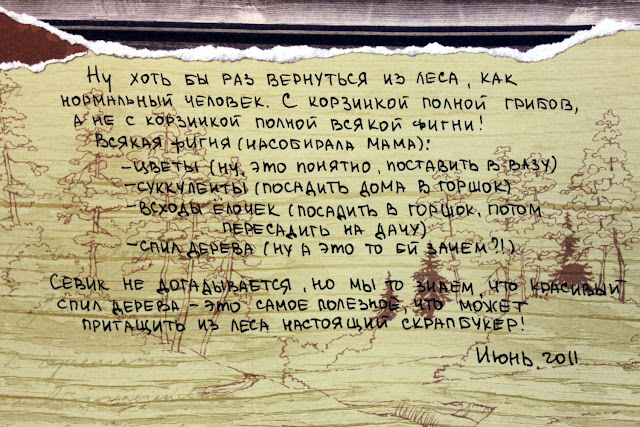 Ну хоть бы раз вернуться из леса, как
нормальный человек. С корзинкой полной грибов,
а не с корзинкой полной всякой фигни!
Всякая фигня (насобирала мама):
- цветы (ну, это понятно, поставить в вазу)
- суккуленты (посадить дома в горшок)
- всходы ёлочек (посадить в горшок, потом
пересадить на дачу)
- спил дерева (ну а это то ей зачем?!)
Севик не догадывается, но мы то знаем, что красивый
спил дерева - это самое полезное, что может
притащить из леса настоящий скрапбукер!
Июнь 2011